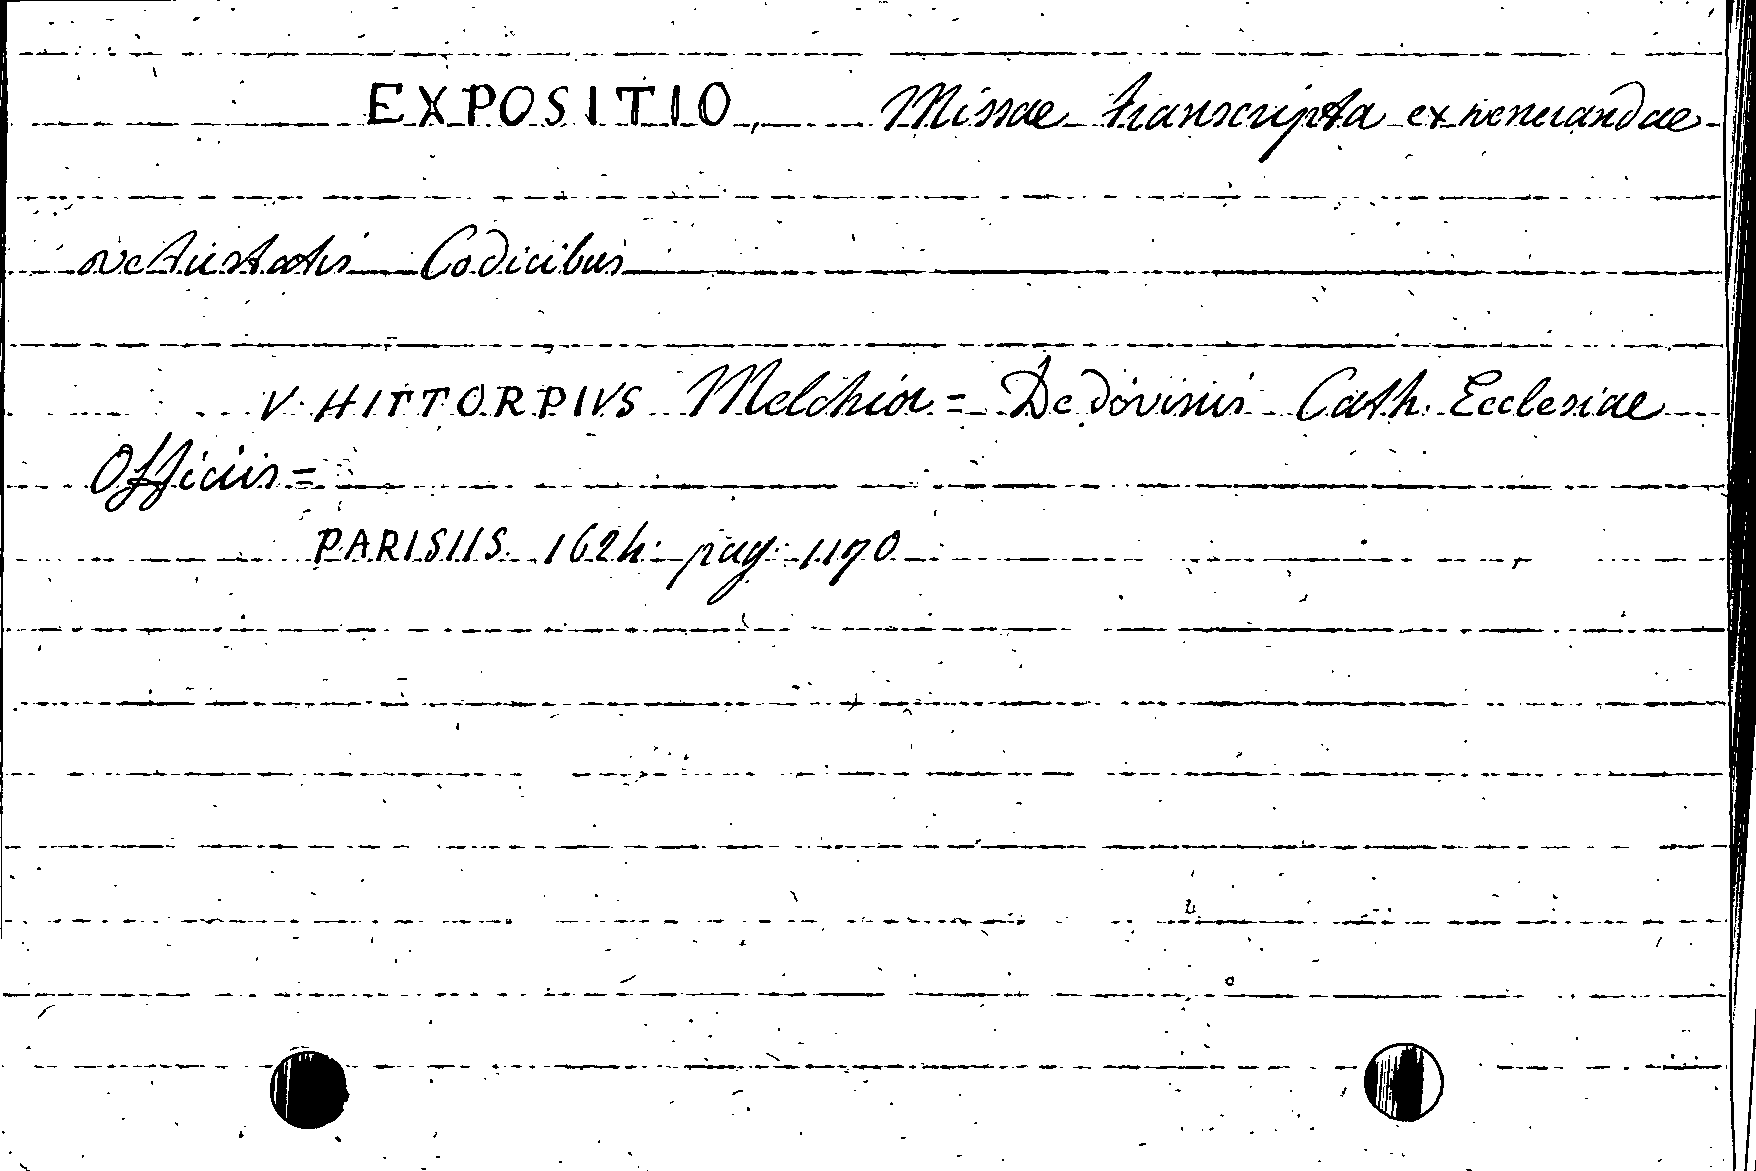 EXPOSITIO, Missae transcripta ex venerandae
vetustatis Codicibus
V. HITTORPIVS Melchior = De divinis Cath. Ecclesiae
Officiis =
PARISIIS. 1624. pag. 1170